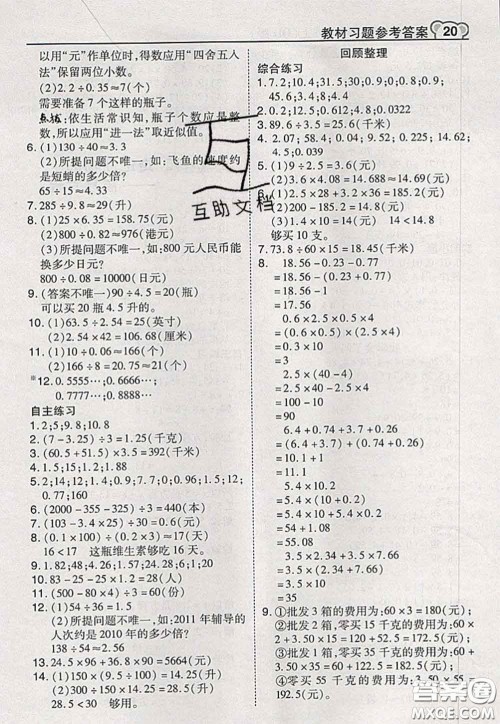 教材习题参考答案 20
以用“元”作单位时,得数应用“四舍五入
法”保留两位小数。
需要准备7个这样的瓶子。
点拨:依生活常识知,瓶子个数应是整
数,所以应用“进一法”取近似值。
6. (1)130÷40≈3.3
(2)所提问题不唯一,如:飞鱼的速度约
是短蛸的多少倍?
65÷15≈4.33
7. 285÷29≈9.8
8. (1)25×6.35=158.75(元)
(2)800÷0.92≈869.57(元)
(3)所提问题不唯一,如:800元人民币能
换多少日元?
800÷0.08=10000(日元)
9. (答案不唯一)90÷4.5=20(瓶)
可以买20瓶4.5升的。
10. (1)63.5÷2.54=25(英寸)
(2)2.54×42=106.68(厘米)
11. (1)10÷0.06≈166(个)
(2)166÷8=20.75≈21(个)
※12. 0.5555⋯;0.6666⋯;
0.7777⋯;0.8888⋯
自主练习
1. 0.2;5;9.8;10.8
2. (7-3.25)÷3=1.25(千克)
3. (60+51.5)×3=334.5(千米)
4. 1.5;15;1.2;1.88
5. 2;12;14;1.2;0.9;7.7;0.7;0.96;1.7;
0.07;16
6. (2000-355-325)÷3=440(本)
7. (103-7)÷24=4(元)
8. (0.1×100)÷(0.2×3)≈17(天)
16<17 这瓶维生素够吃16天。
9. 1.88;24.96;4.31;4.86;5.74;8;1
10. (133-25)÷25≈4.3
11. (85-15)÷2.5=28(人)
12. (1)54+36×1.5
(2)所提问题不唯一,如:2011年辅导的
人次约是2010年的多少倍?
138÷54≈2.56
13. 24.5×96+36.8×90=5664(元)
14. 2.5×3+7×3=28.5(元)
28.5<30 够用。
回顾整理
综合练习
1. 7.2;10.4;31.5;30;0.23;0.5;0.9;
45.6;4.8;3
2. 0.2;12.5;0.612;4.8;0.0322
3. 89.6÷3.5=25.6(千米)
5. (1)9÷2.5=3.6(元)
(2)3.6×4.8=17.28(元)
(2)200÷0.8=250(元)
够买10支。
7. 73.8÷60×15=18.45(千米)
8. 18.56-0.23-0.77
=18.56-(0.23+0.77)
=18.56-1
=17.56
0.6×2.5×0.5×4
=(0.6×0.5)×(2.5×4)
=0.3×10
=3
2.5×(40-4)
=2.5×40-2.5×4
=100-10
=90
6.6+0.74+3.4+7.26
=(6.6+3.4)+(0.74+7.26)
=10+8
=18
5.4×10.2
=5.4×(10+0.2)
=5.4×10+5.4×0.2
=54+1.08
=55.08
3.5×2.7+7.3×3.5
=3.5×(2.7+7.3)
=3.5×10
=35
9. ①批发3箱的费用为:60×3=180(元);
②批发2箱、零买15千克的费用为:
60×2+4.5×15=187.5(元);
③批发1箱、零买35千克的费用为:
60+4.5×35=217.5(元);
④零买55千克的费用为:55×3.5=
192.5(元)。
互助文档
答案圈
MXQE.COM